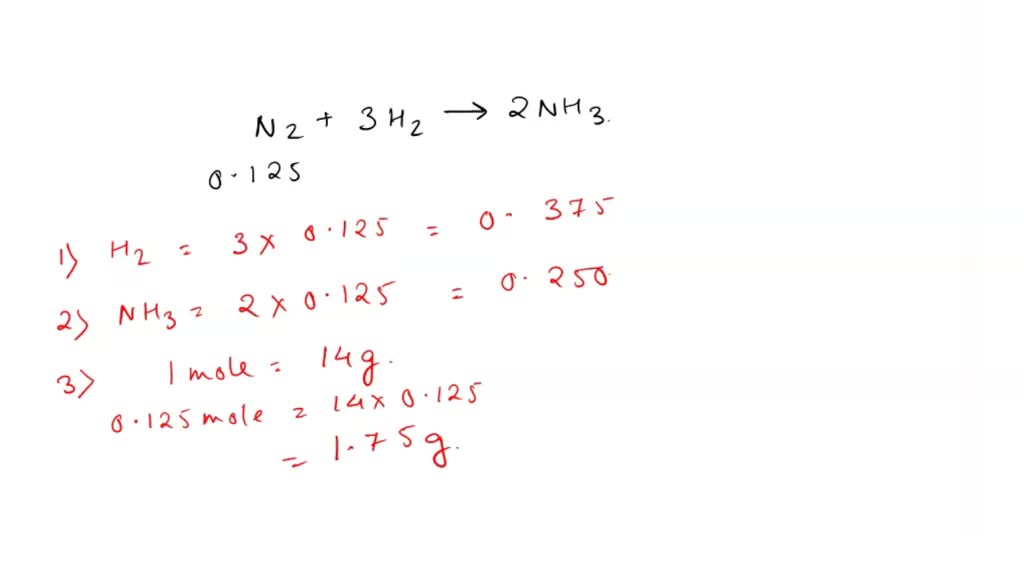 N2 + 3H2 → 2NH3.
0.125
1) H2 = 3 × 0.125 = 0.375
2) NH3 = 2 × 0.125 = 0.250
3) 1 mole = 14g.
0.125 mole = 14 × 0.125
= 1.75g.